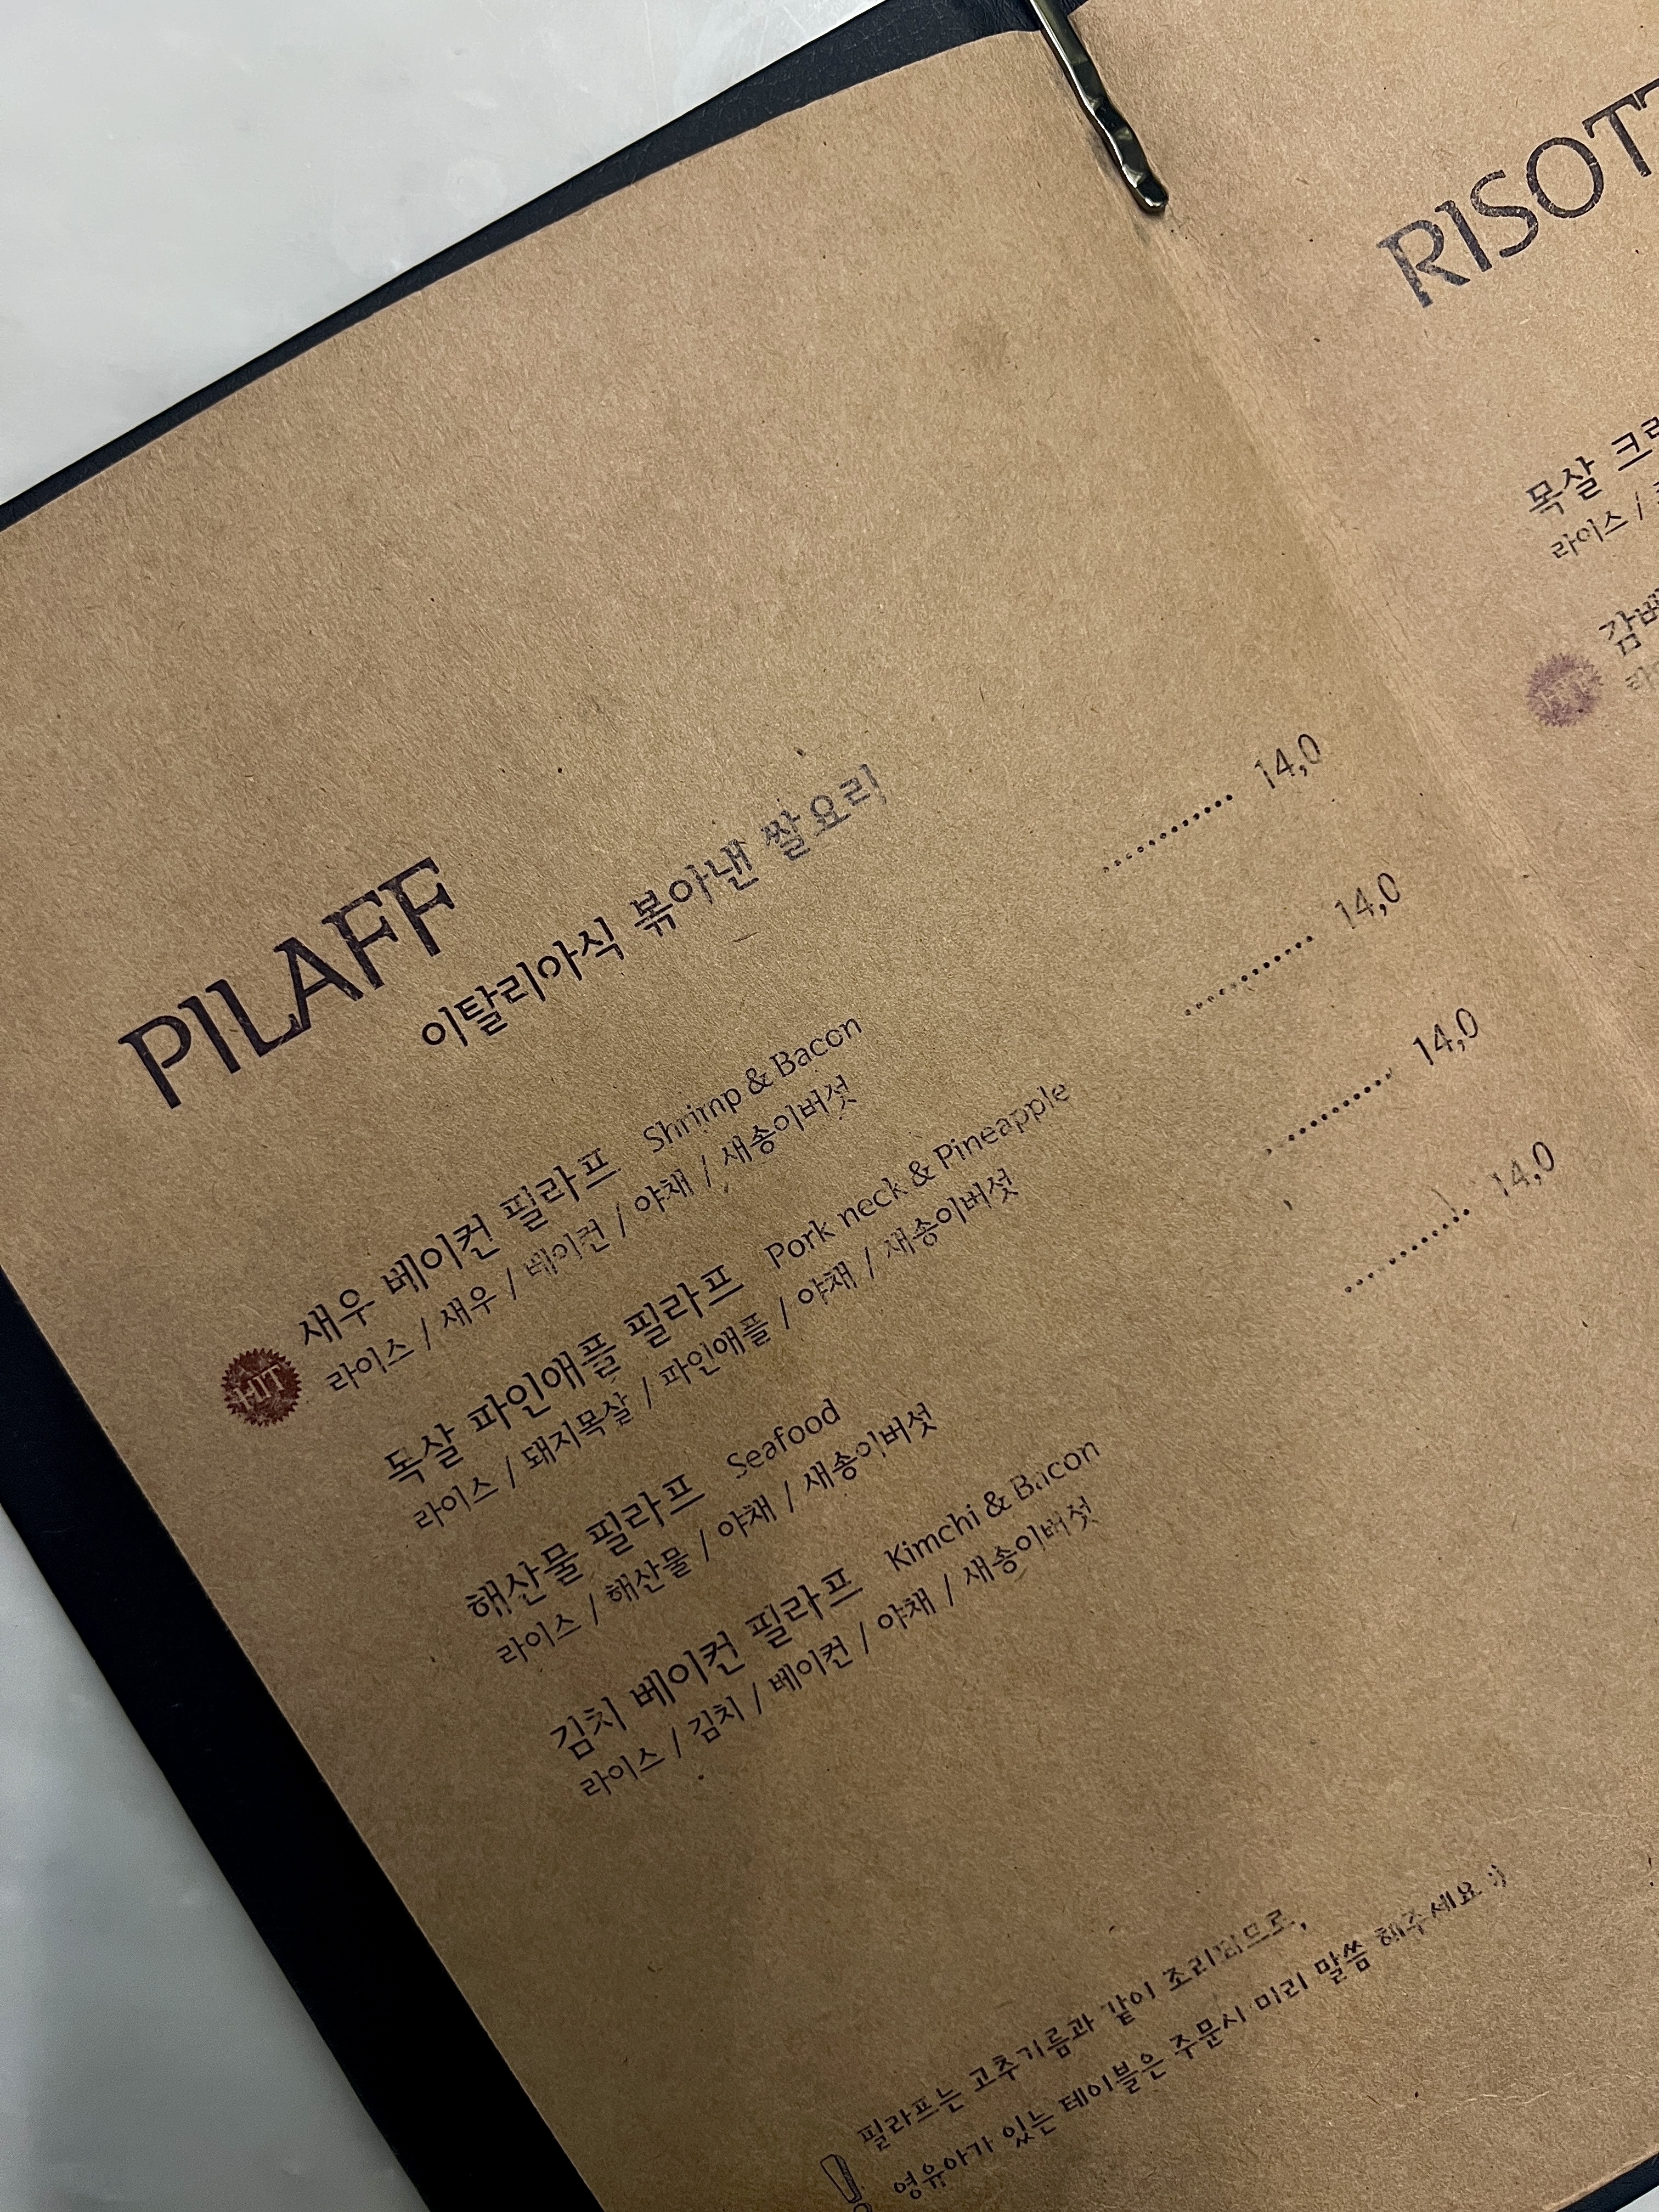 PILAFF
이탈리아식 볶아낸 쌀요리
HIT
새우 베이컨 필라프 Shrimp & Bacon 14,0
라이스 / 새우 / 베이컨 / 야채 / 새송이버섯
목살 파인애플 필라프 Pork neck & Pineapple 14,0
라이스 / 돼지목살 / 파인애플 / 야채 / 새송이버섯
해산물 필라프 Seafood 14,0
라이스 / 해산물 / 야채 / 새송이버섯
김치 베이컨 필라프 Kimchi & Bacon 14,0
라이스 / 김치 / 베이컨 / 야채 / 새송이버섯
필라프는 고추기름과 같이 조리됨므로,
영유아가 있는 테이블은 주문시 미리 말씀 해주세요 :)
RISOTT
목살 크리
라이스 /
HIT
감베
라